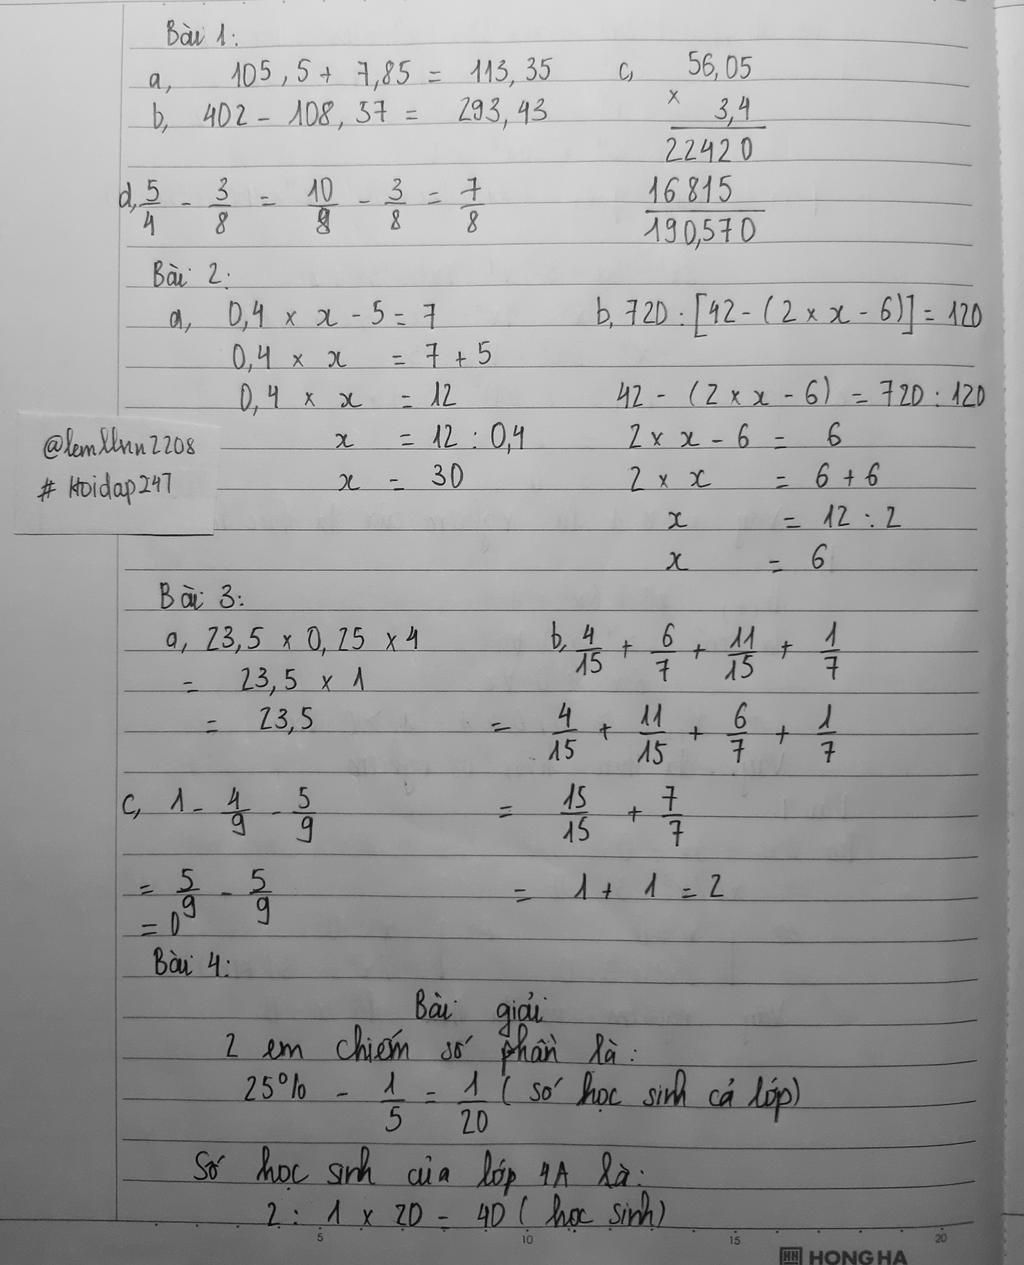 Bài 1:
a, 105,5 + 7,85 = 113,35
b, 402 - 108,57 = 293,43
c, 56,05
× 3,4
22420
16815
190,570
d, 5/4 - 3/8 = 10/8 - 3/8 = 7/8
Bài 2:
a, 0,4 × x - 5 = 7
0,4 × x = 7 + 5
0,4 × x = 12
x = 12 : 0,4
x = 30
b, 720 : [42 - (2 × x - 6)] = 120
42 - (2 × x - 6) = 720 : 120
2 × x - 6 = 6
2 × x = 6 + 6
x = 12 : 2
x = 6
@lemllnn2208
# Hoidap247
Bài 3:
a, 23,5 × 0,25 × 4
= 23,5 × 1
= 23,5
b, 4/15 + 6/7 + 11/15 + 1/7
= 4/15 + 11/15 + 6/7 + 1/7
= 15/15 + 7/7
= 1 + 1 = 2
c, 1 - 4/9 - 5/9
= 5/9 - 5/9
= 0
Bài 4:
Bài giải
2 em chiếm số phần là:
25% - 1/5 = 1/20 ( số học sinh cả lớp)
Số học sinh của lớp 4A là:
2 : 1 × 20 = 40 ( học sinh)
5 10 15 20
HH HONG HA